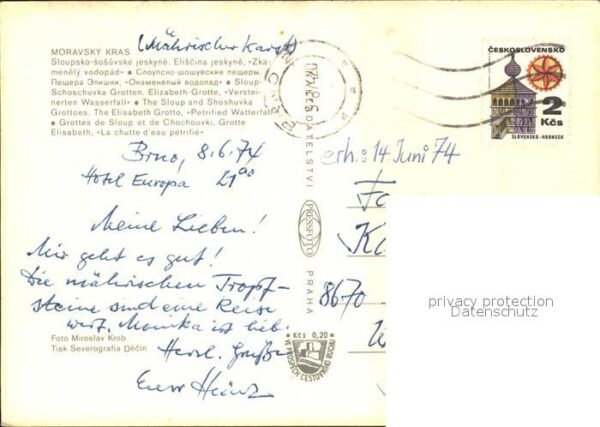 MORAVSKÝ KRAS (Mährischer Karst)
Sloupsko-šošůvské jeskyně. Eliščina jeskyně, «Zka-
menělý vodopád» • Слоупско-шошувские пещеры.
Пещера Элишки. «Окаменелый водопад» • Sloup-
Schoschuvka Grotten. Elizabeth-Grotte, «Verstei-
nerten Wasserfall» • The Sloup and Shoshuvka
Grottoes. The Elisabeth Grotto, «Petrified Watterfall»
• Grottes de Sloup et de Chochouvki, Grotte
Elisabeth, «La chutte d'eau pétrifié»
Brno, 8.6.74
Hotel Europa 21⁰⁰
Meine Lieben!
Mir geht es gut!
Die mährischen Tropf-
steine sind eine Reise
wert. Monika ist lieb.
Herzl. Grüße
Euer Heinz
Foto Miroslav Krob
Tisk Severografia Děčín
PRESSFOTO
PRAHA
Kčs 0,20
VE PROSPĚCH CESTOVNÍHO RUCHU
ČESKOSLOVENSKO
2
Kčs
SLOVENSKO-HRONSEK
erh.: 14 Juni 74
8670
privacy protection
Datenschutz